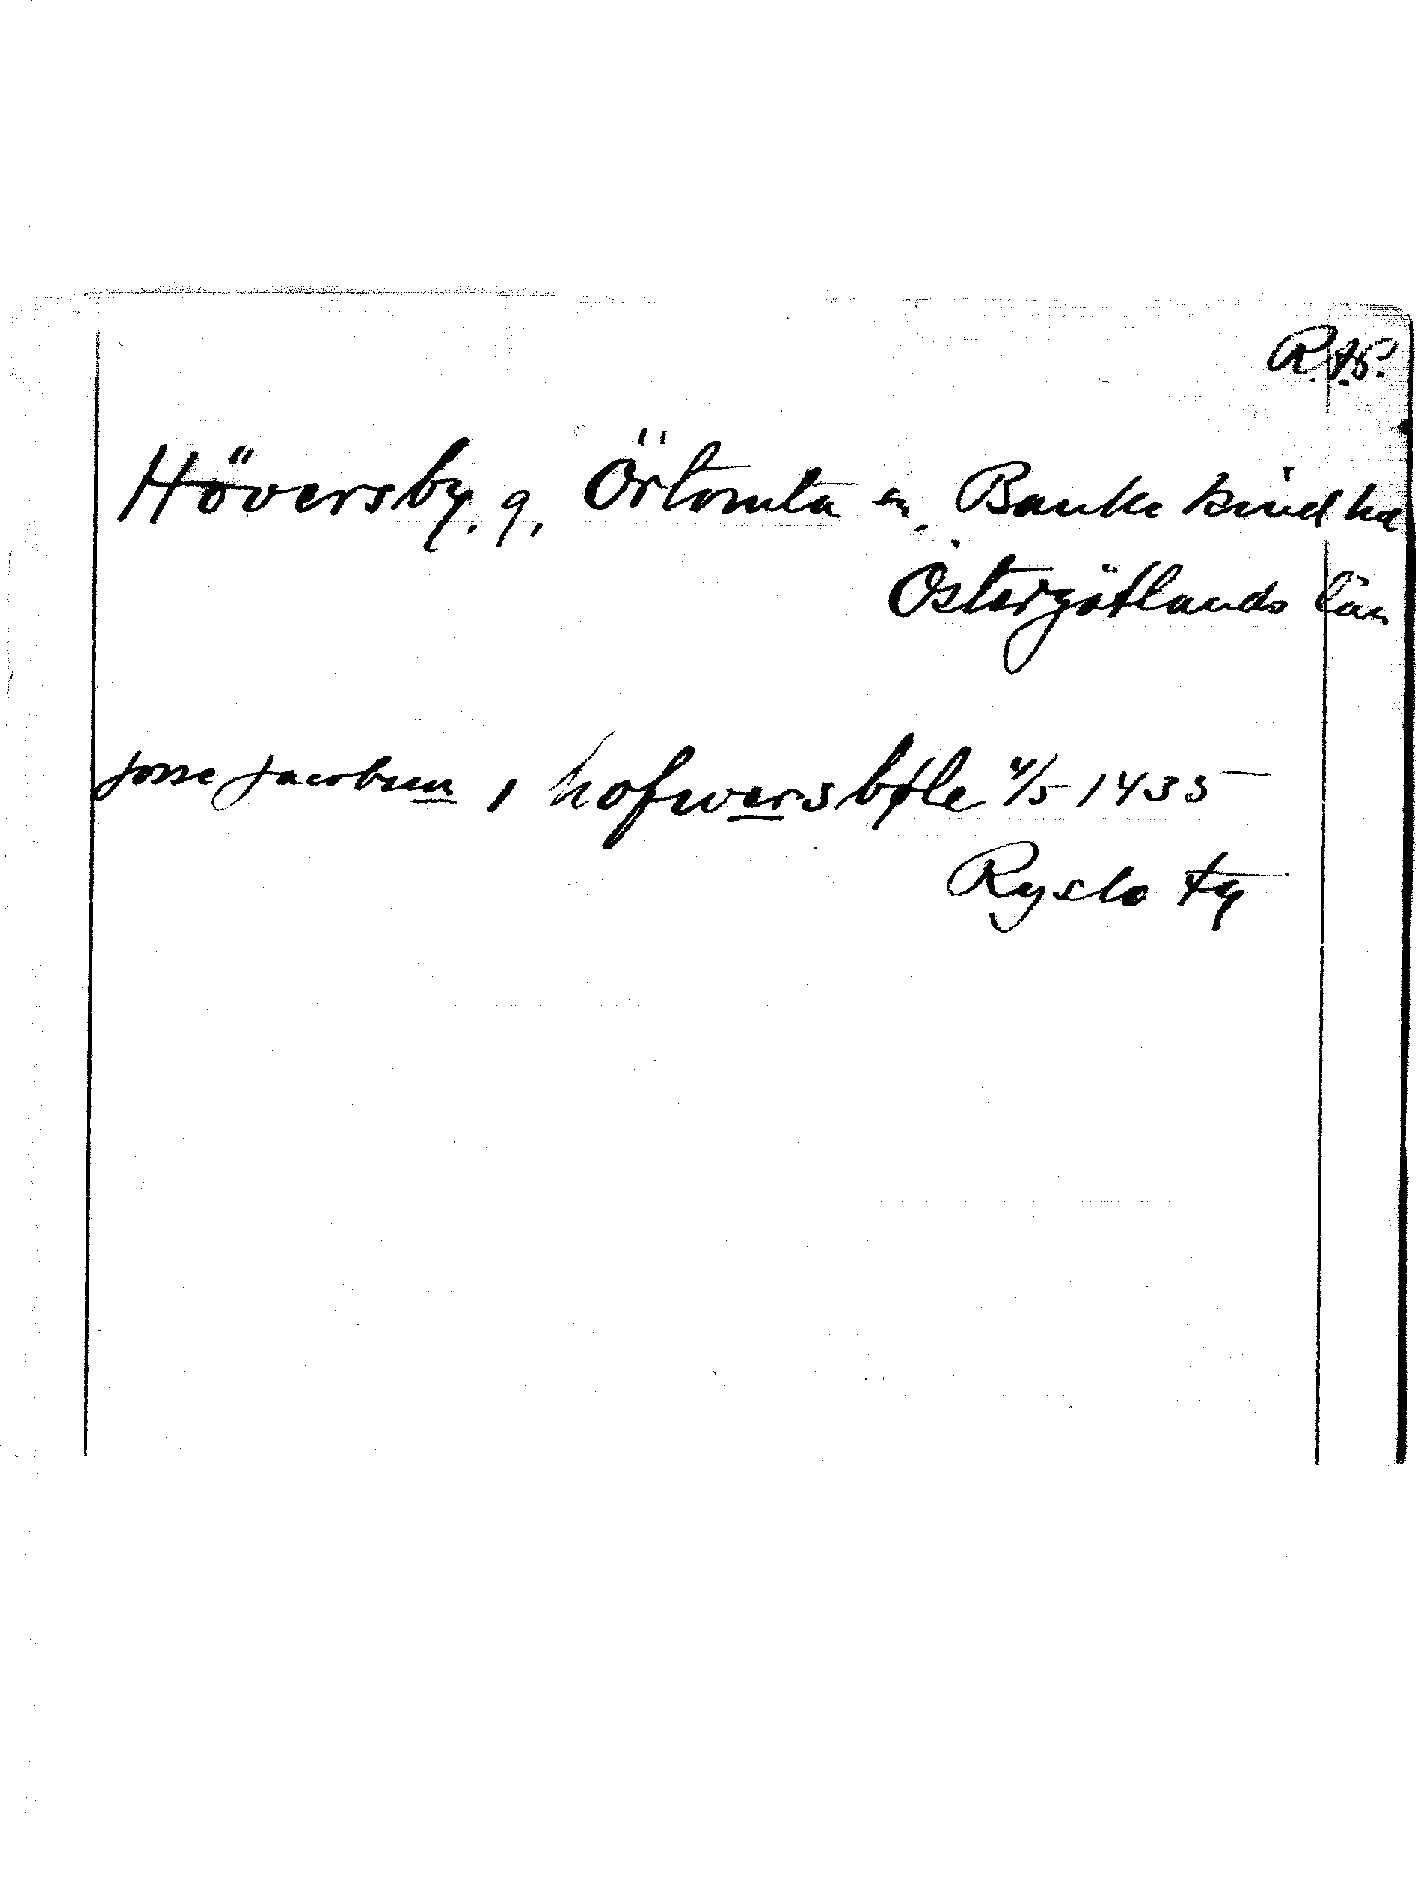 R.A.P.
Höversby, g, Örtomta sn, Bankekind hd
Östergötlands län
Josse Jacobsun i hofwersbøle 4/5 1435
Ryslo tg